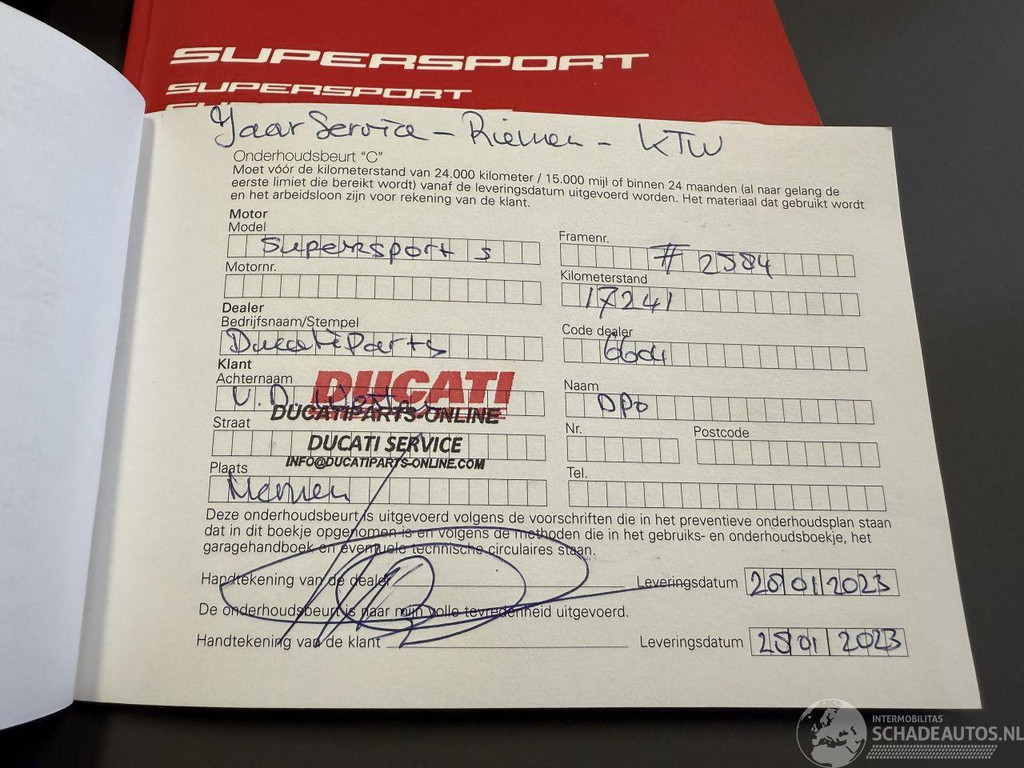 SUPERSPORT
SUPERSPORT
Jaar Service - Riemen - KTW
Onderhoudsbeurt "C"
Moet vóór de kilometerstand van 24.000 kilometer / 15.000 mijl of binnen 24 maanden (al naar gelang de
eerste limiet die bereikt wordt) vanaf de leveringsdatum uitgevoerd worden. Het materiaal dat gebruikt wordt
en het arbeidsloon zijn voor rekening van de klant.
Motor
Model
Supersport S
Framenr.
# 2584
Motornr.
Kilometerstand
17241
Dealer
Bedrijfsnaam/Stempel
DucatiParts
Code dealer
6604
Klant
Achternaam
V.D.
DUCATI
DUCATIPARTS-ONLINE
DUCATI SERVICE
INFO@DUCATIPARTS-ONLINE.COM
Naam
DPO
Straat
Nr.
Postcode
Plaats
Tel.
Deze onderhoudsbeurt is uitgevoerd volgens de voorschriften die in het preventieve onderhoudsplan staan
dat in dit boekje opgenomen is en volgens de methoden die in het gebruiks- en onderhoudsboekje, het
garagehandboek en eventuele technische circulaires staan.
Handtekening van de dealer
Leveringsdatum 25 01 2023
De onderhoudsbeurt is naar mijn volle tevredenheid uitgevoerd.
Handtekening van de klant
Leveringsdatum 25 01 2023
INTERMOBILITAS
SCHADEAUTOS.NL